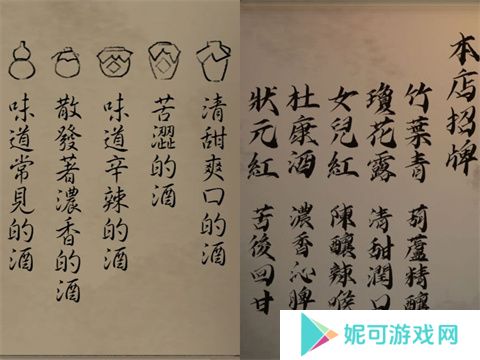 清甜爽口的酒
苦澀的酒
味道辛辣的酒
散發著濃香的酒
味道常見的酒
本店招牌
竹葉青 葫蘆精釀
瓊花露 清甜潤口
女兒紅 陳釀辣喉
杜康酒 濃香沁脾
狀元紅 苦後回甘
妮可游戏网